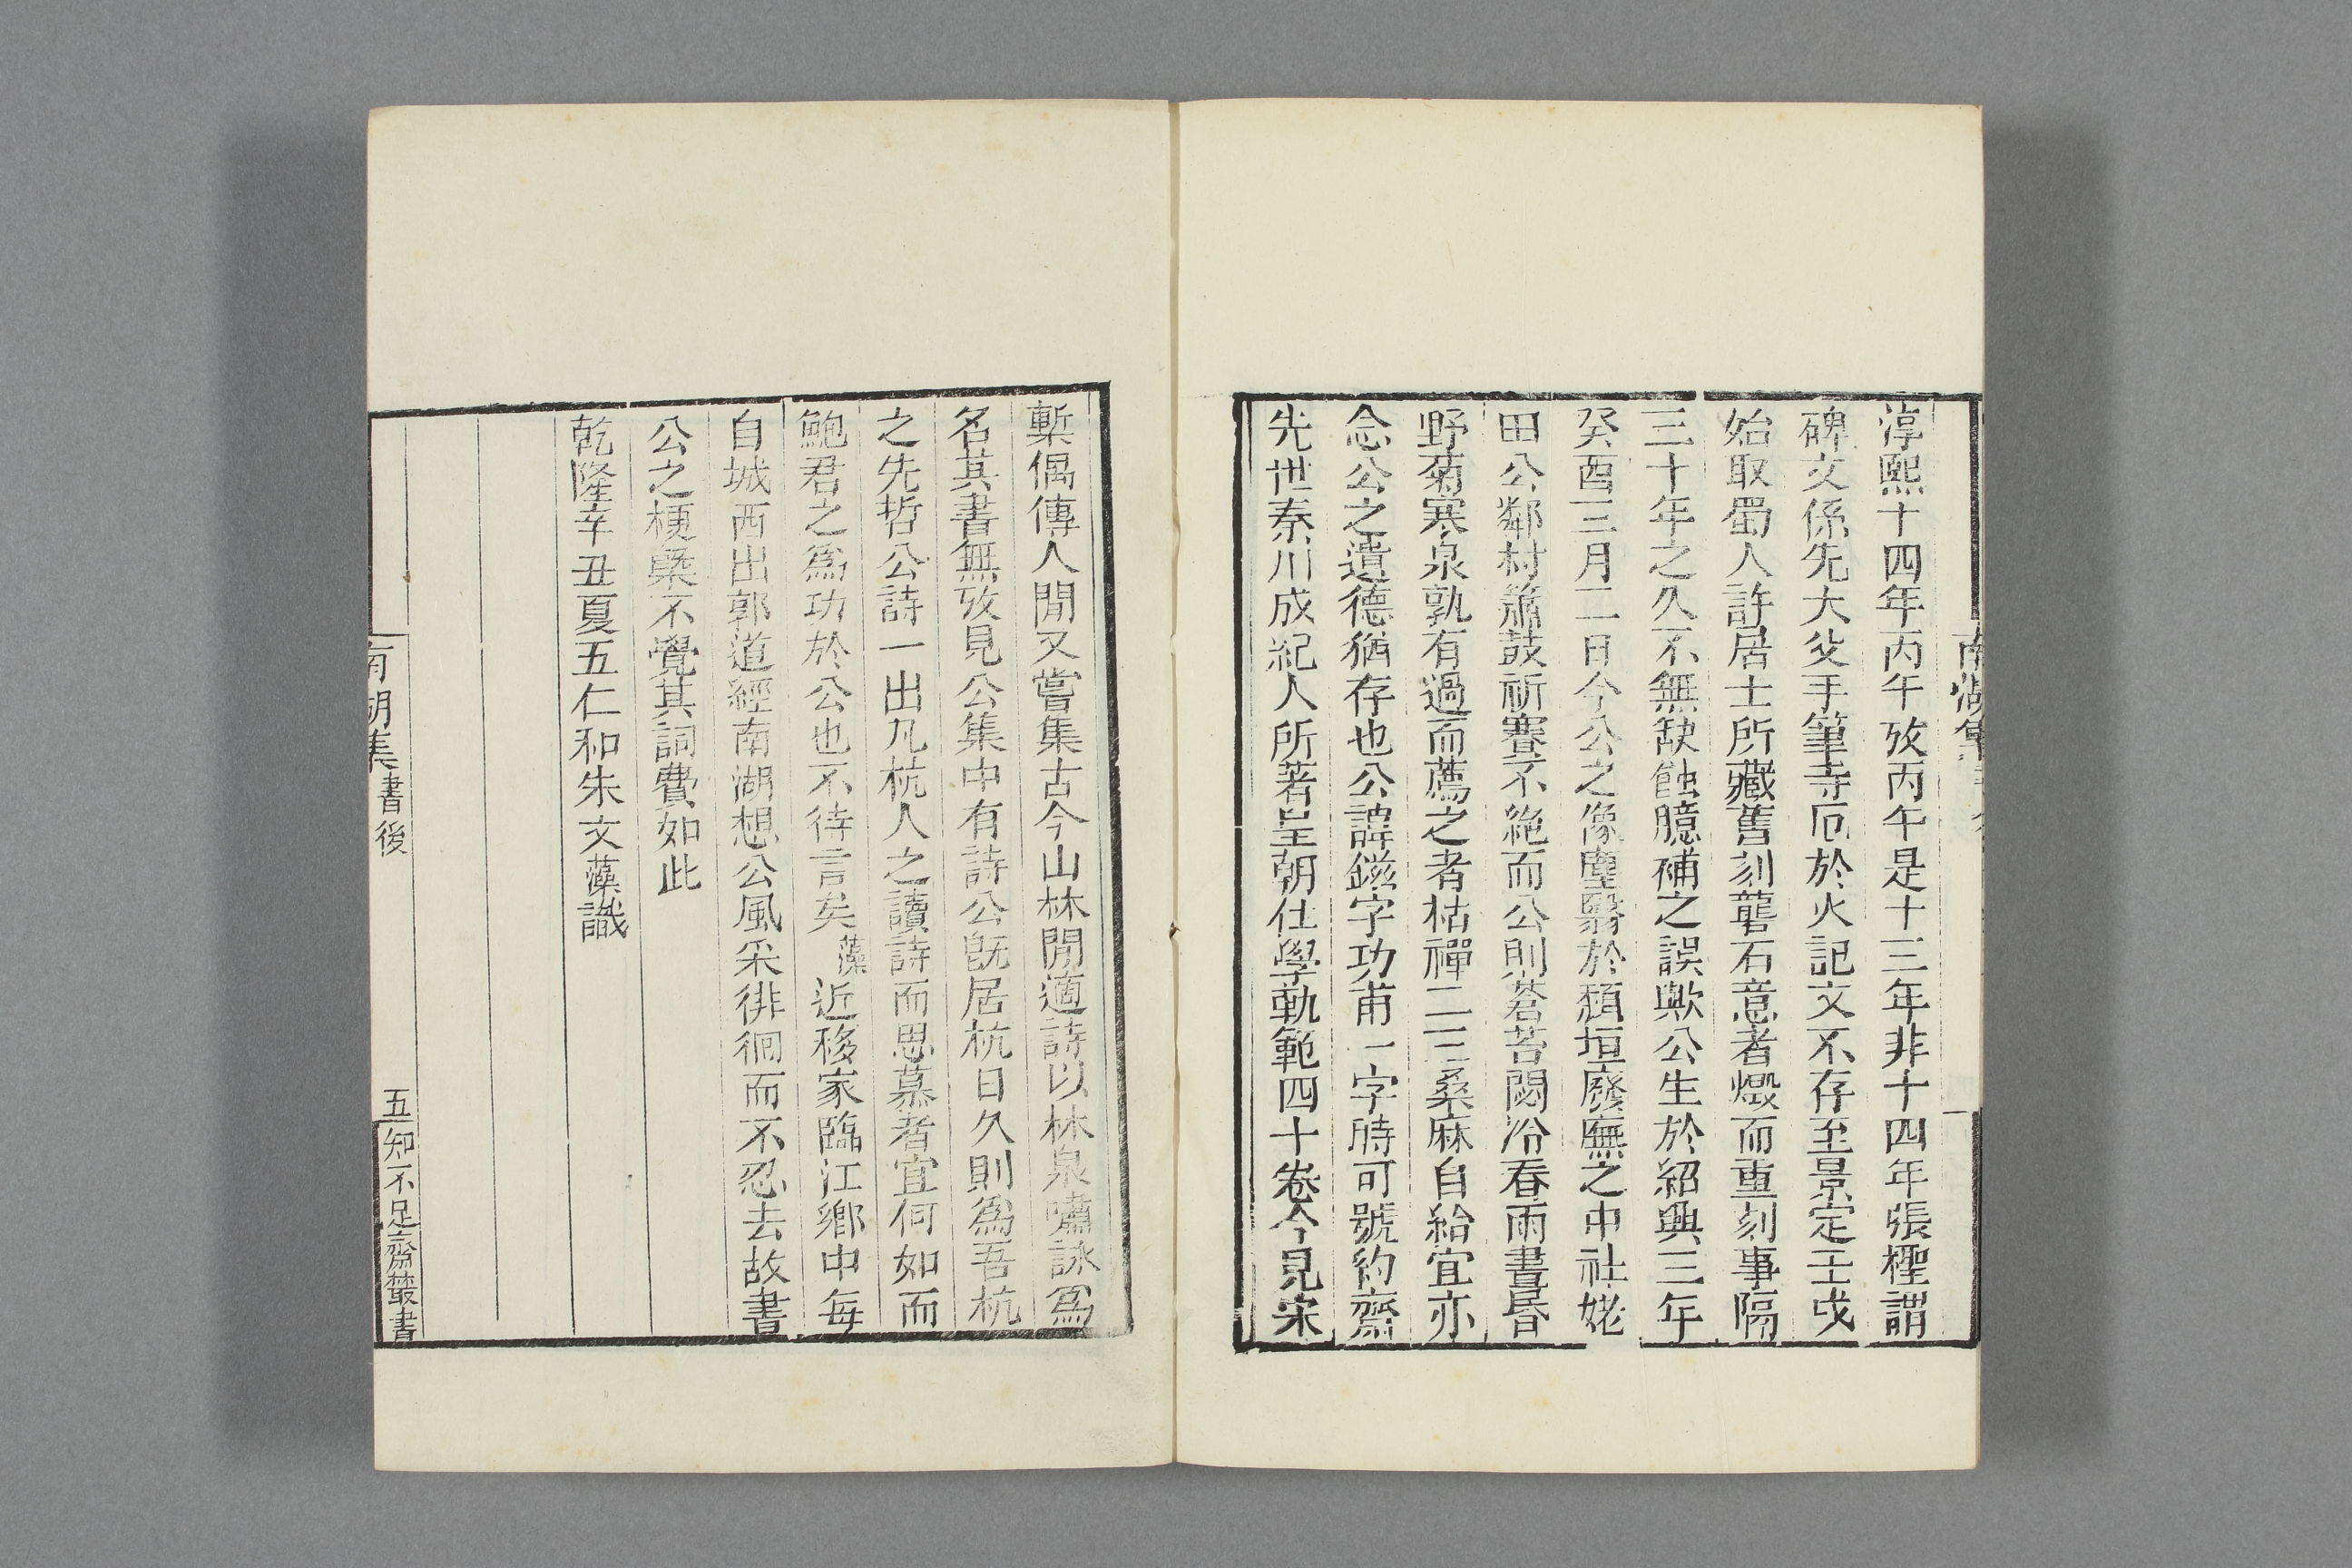 南湖集
淳熙十四年丙午攷丙午是十三年非十四年張檉謂
碑文係先大父手筆寺厄於火記文不存至景定壬戌
始取蜀人許居士所藏舊刻礱石意者燬而重刻事隔
三十年之久不無缺蝕臆補之誤歟公生於紹興三年
癸酉三月二日今公之像塵翳於頹垣廢廡之中社姥
田公鄰村簫鼓祈賽不絶而公則蒼苔閟冷春雨晝昏
野菊寒泉孰有過而薦之者枯禪二三桑麻自給宜亦
念公之遺德猶存也公諱鎡字功甫一字時可號約齋
先世秦川成紀人所著皇朝仕學軌範四十卷今見宋
槧偶傳人閒又嘗集古今山林閒適詩以林泉嘯詠爲
名其書無攷見公集中有詩公旣居杭日久則爲吾杭
之先哲公詩一出凡杭人之讀詩而思慕者宜何如而
鮑君之爲功於公也不待言矣藻近移家臨江鄉中每
自城西出郭道經南湖想公風采徘徊而不忍去故書
公之梗槩不覺其詞費如此
乾隆辛丑夏五仁和朱文藻識
南湖集書後
五
知不足齋叢書